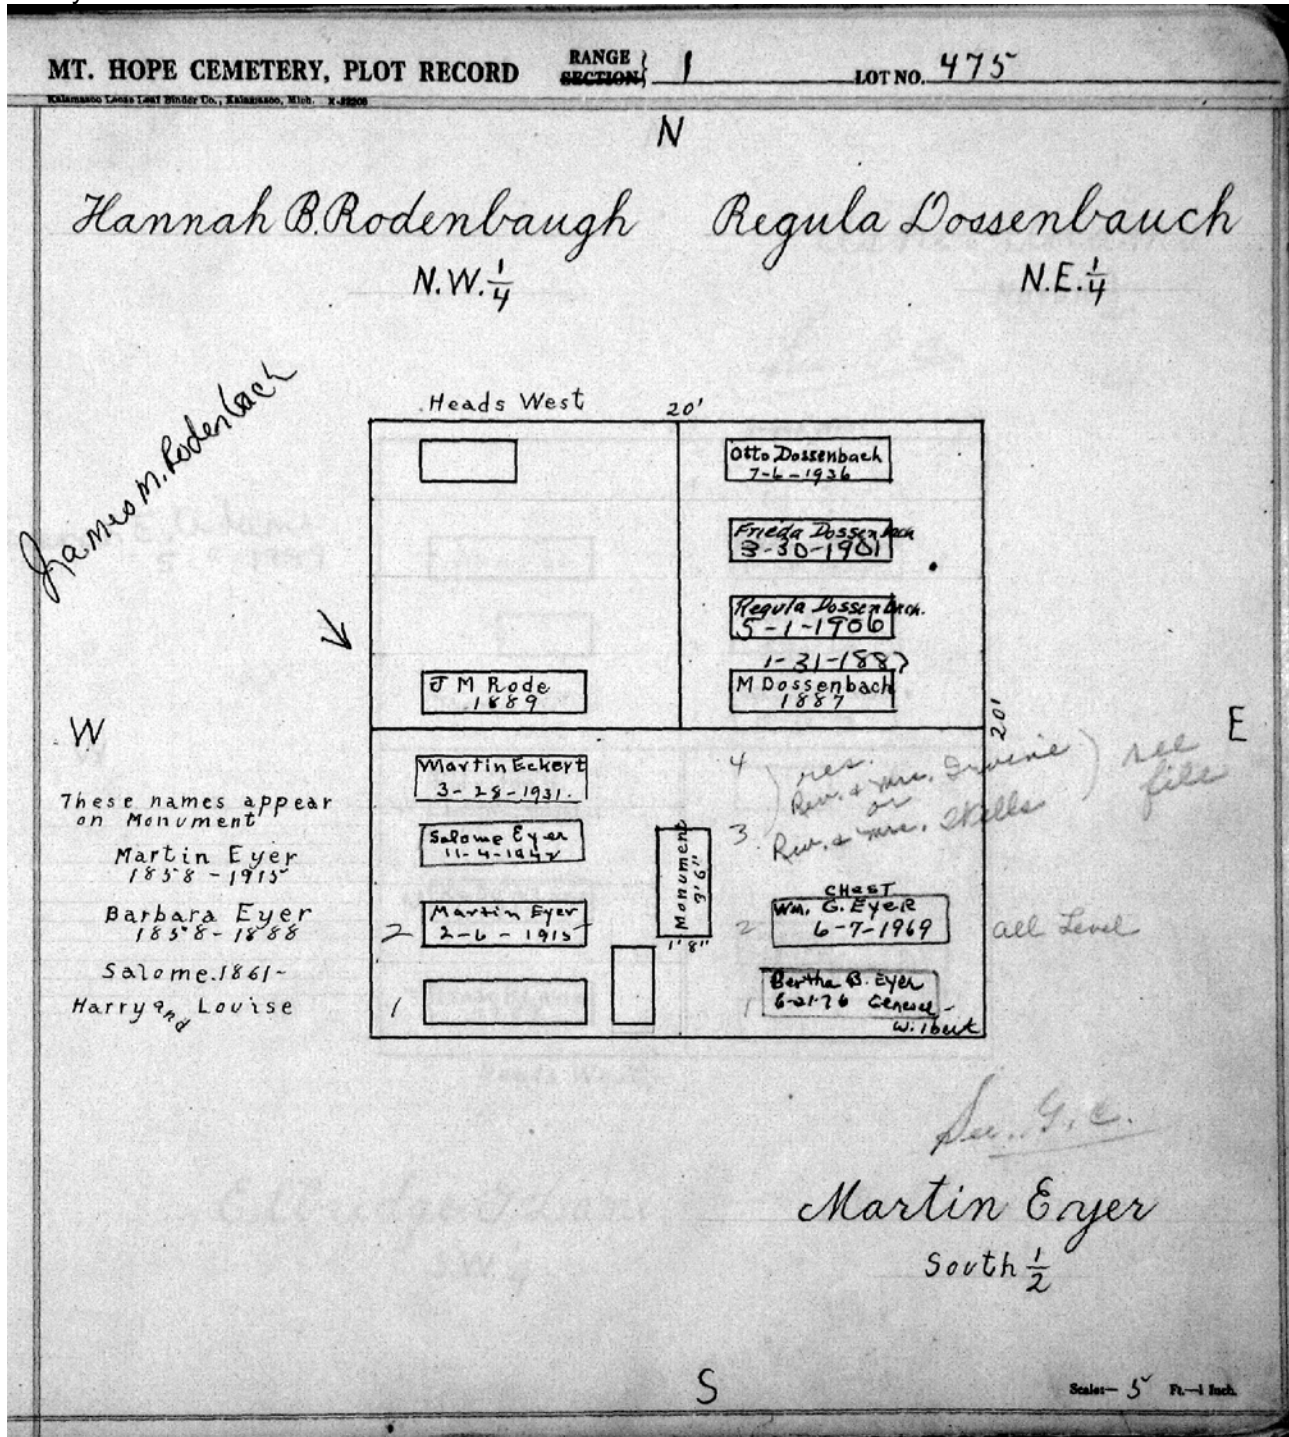 MT. HOPE CEMETERY, PLOT RECORD RANGE SECTION } 1 LOT NO. 475
Kalamazoo Loose Leaf Binder Co., Kalamazoo, Mich.
N
Hannah B. Rodenbaugh
N.W. 1/4
Regula Dossenbauch
N.E. 1/4
James M. Rodenbach
Heads West
20'
Otto Dossenbach
7-6-1936
Frieda Dossenbach
3-30-1901
Regula Dossenbach.
5-1-1906
1-31-1887
M Dossenbach
1887
J M Rode
1889
20'
W
E
These names appear
on Monument
Martin Eyer
1858-1915
Barbara Eyer
1858-1888
Salome. 1861-
Harry and Louise
Martin Eckert
3-28-1931.
Salome Eyer
11-4-1942
2
Martin Eyer
2-6-1915
1
Monument
3'6"
1'8"
4
res.
Rev. & Mrs. Irvine
or
3
Rev. & Mrs. Skells
see
file
CHEST
2
Wm. G. EYER
6-7-1969
all Level
1
Bertha B. Eyer
6-21-76 General-
Wilbert
G.C.
Martin Eyer
South 1/2
S
Scale:— 5 Ft.—1 Inch.